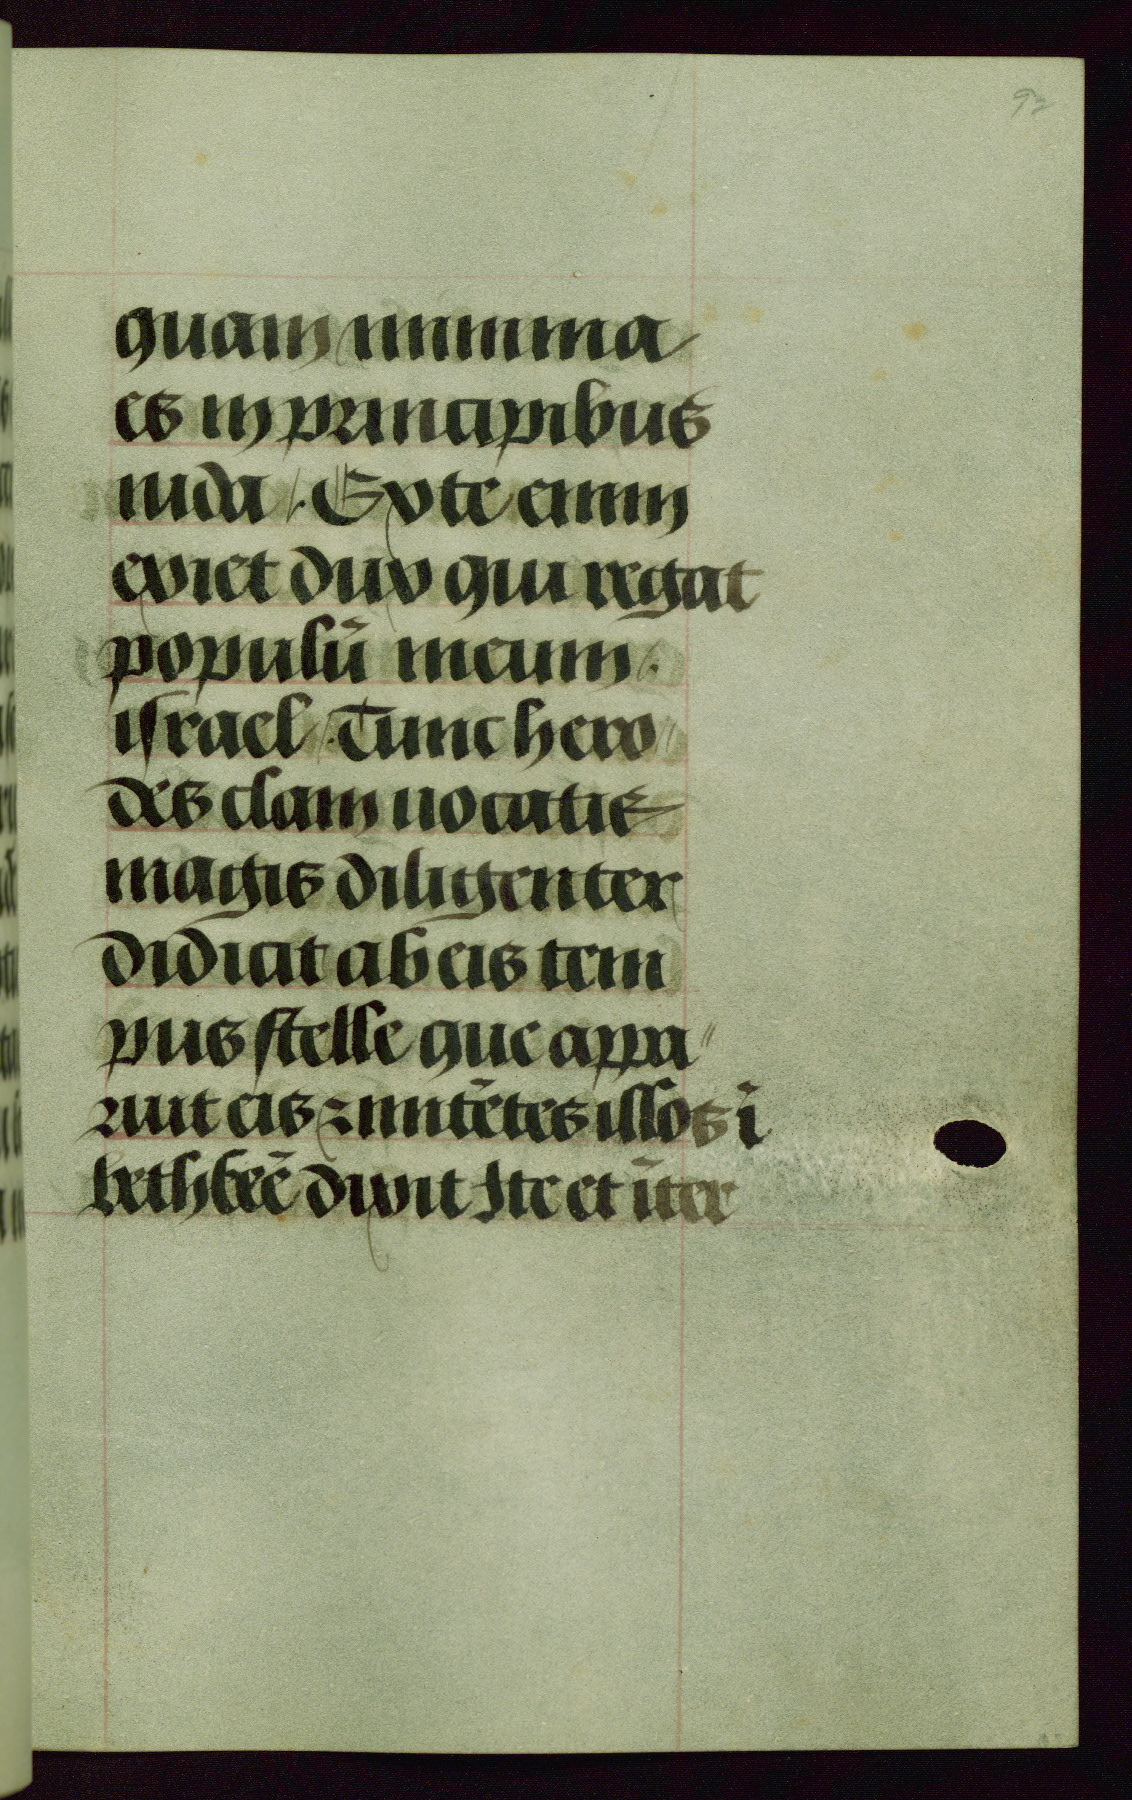 92
quam minima
es in principibus
iuda /. Ex te enim
exiet dux qui regat
populū meum /.
israel /. Tunc hero//
des clam uocatis
magis diligenter
didicit ab eis tem
pus stelle que appa//
ruit eis ⁊ mitētes illos ī
bethleē dixit Ite et īter